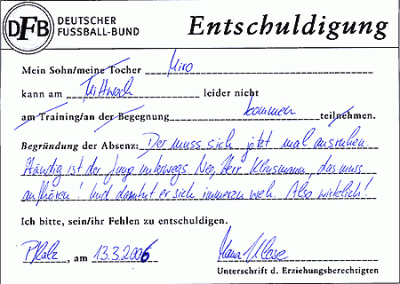 DFB DEUTSCHER FUSSBALL-BUND Entschuldigung
Mein Sohn/meine Tocher Miro
kann am Mittwoch leider nicht
am Training/an der Begegnung kommen teilnehmen.
Begründung der Absenz: Der muss sich jetzt mal ausruhen
Ständig ist der Junge unterwegs. Nee, Herr Klinsmann, das muss
aufhören! Und dann tut er sich immerzu weh. Also wirklich!
Ich bitte, sein/ihr Fehlen zu entschuldigen.
Pfalz, am 13.3.2006 Mama Klose
Unterschrift d. Erziehungsberechtigten